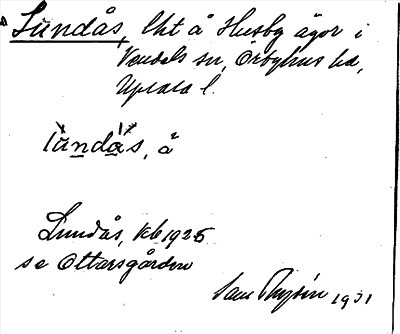 Lundås, lht å Husby ägor i
Vendels sn, Örbyhus hd,
Uppsala l.
lùndás, å
Lundås, kb 1925
se Ottarsgården
1931